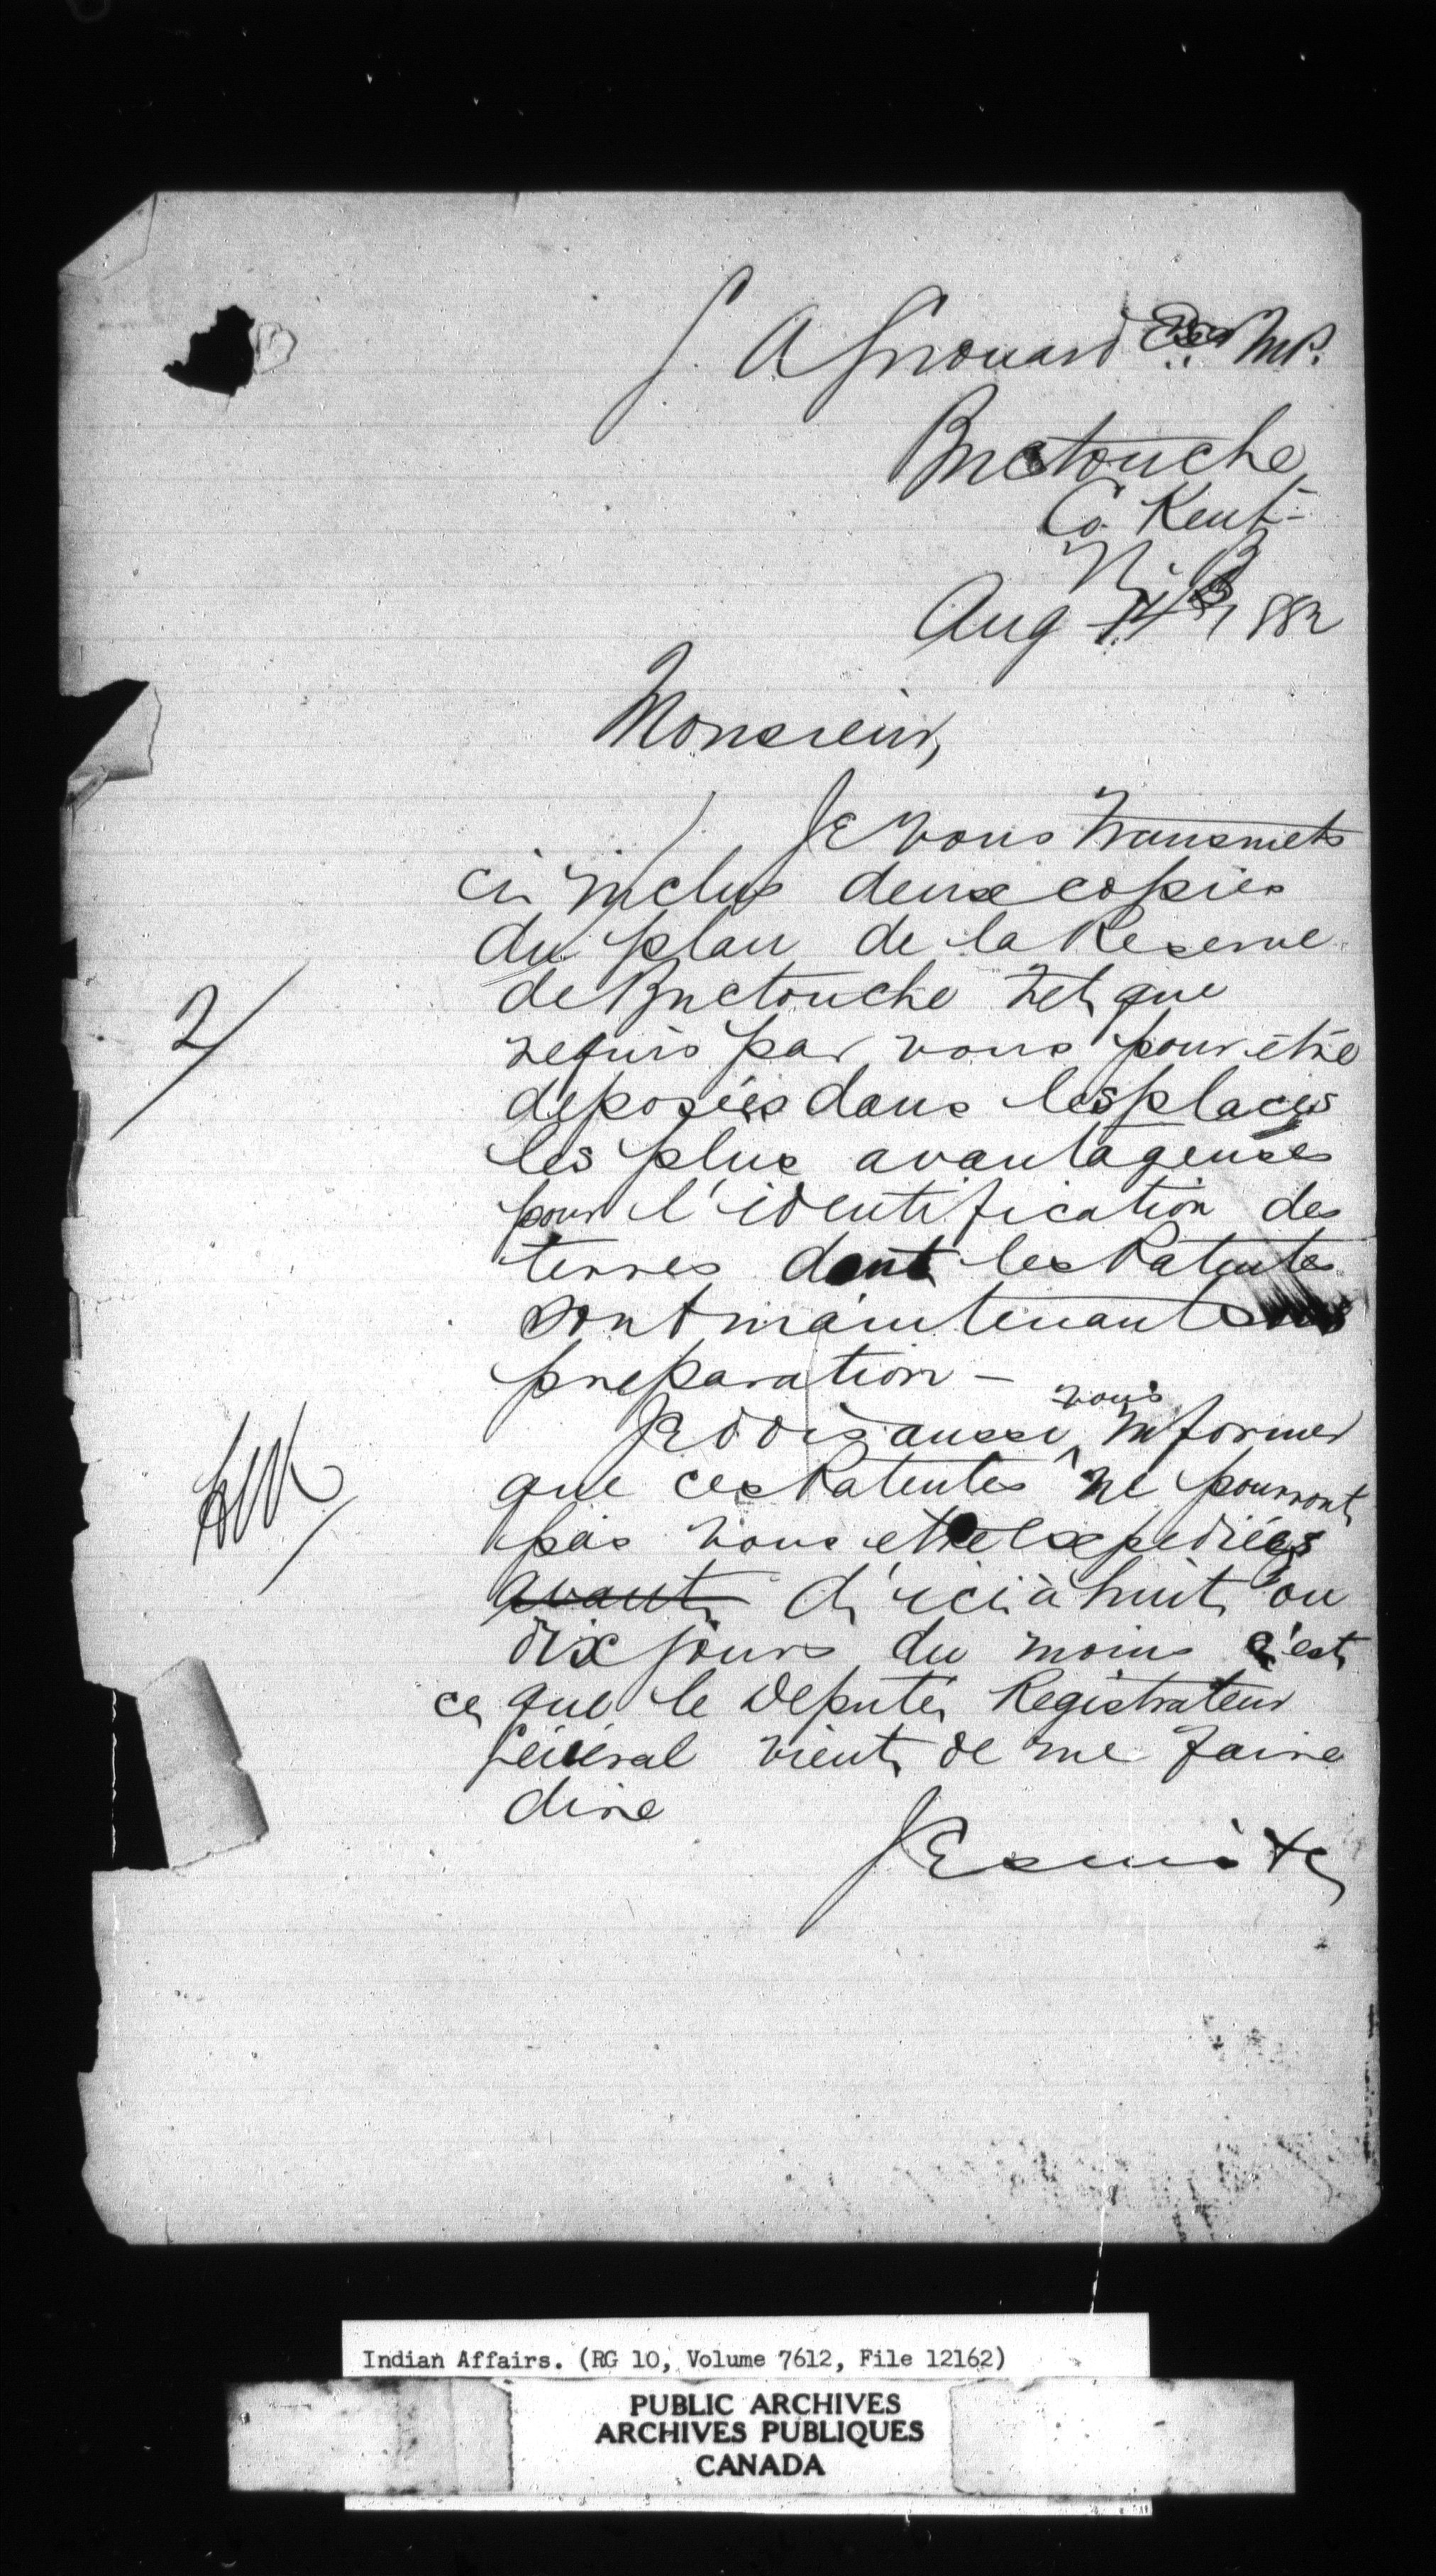 G. A Girouard Esq MP.
Buctouche
Co. Kent
N. B
Aug 14 1882
Monsieur,
Je vous transmets
ci inclus deux copies
du plan de la Reserve
de Buctouche tel que
requis par vous pour être
deposées dans les places
les plus avantageuses
pour l'identification des
terres dont les Patentes
sont maintenant en
preparation —
Je dois aussi vous informer
que ces Patentes ne pourront
pas vous etre expediées
avant d'ici à huit ou
dix jours du moins c'est
ce que le Député Registrateur
Général vient de me faire
dire
Je suis &c
2/
Indian Affairs. (RG 10, Volume 7612, File 12162)
PUBLIC ARCHIVES
ARCHIVES PUBLIQUES
CANADA